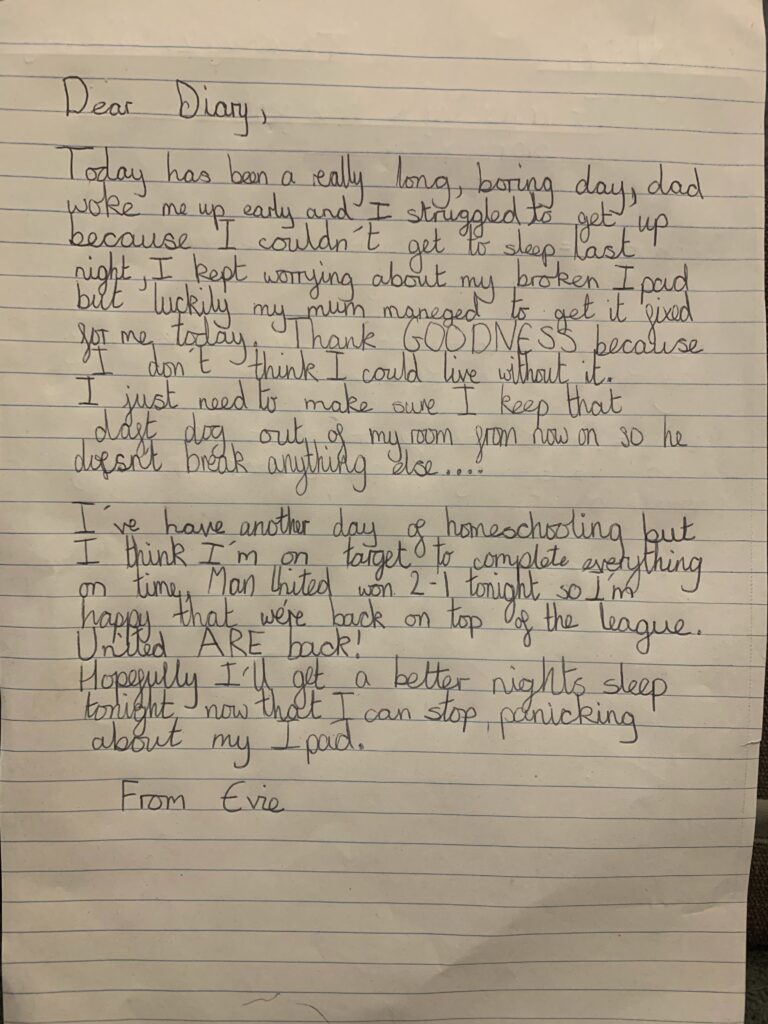 Dear Diary,
Today has been a really long, boring day, dad
woke me up early and I struggled to get up
because I couldn't get to sleep last
night, I kept worrying about my broken I pad
but luckily my mum maneged to get it fixed
for me today. Thank GOODNESS because
I don't think I could live without it.
I just need to make sure I keep that
daft dog out of my room from now on so he
doesn't break anything else....
I've have another day of homeschooling but
I think I'm on target to complete everything
on time, Man United won 2-1 tonight so I'm
happy that we're back on top of the league.
United ARE back!
Hopefully I'll get a better nights sleep
tonight now that I can stop panicking
about my I pad.
From Evie